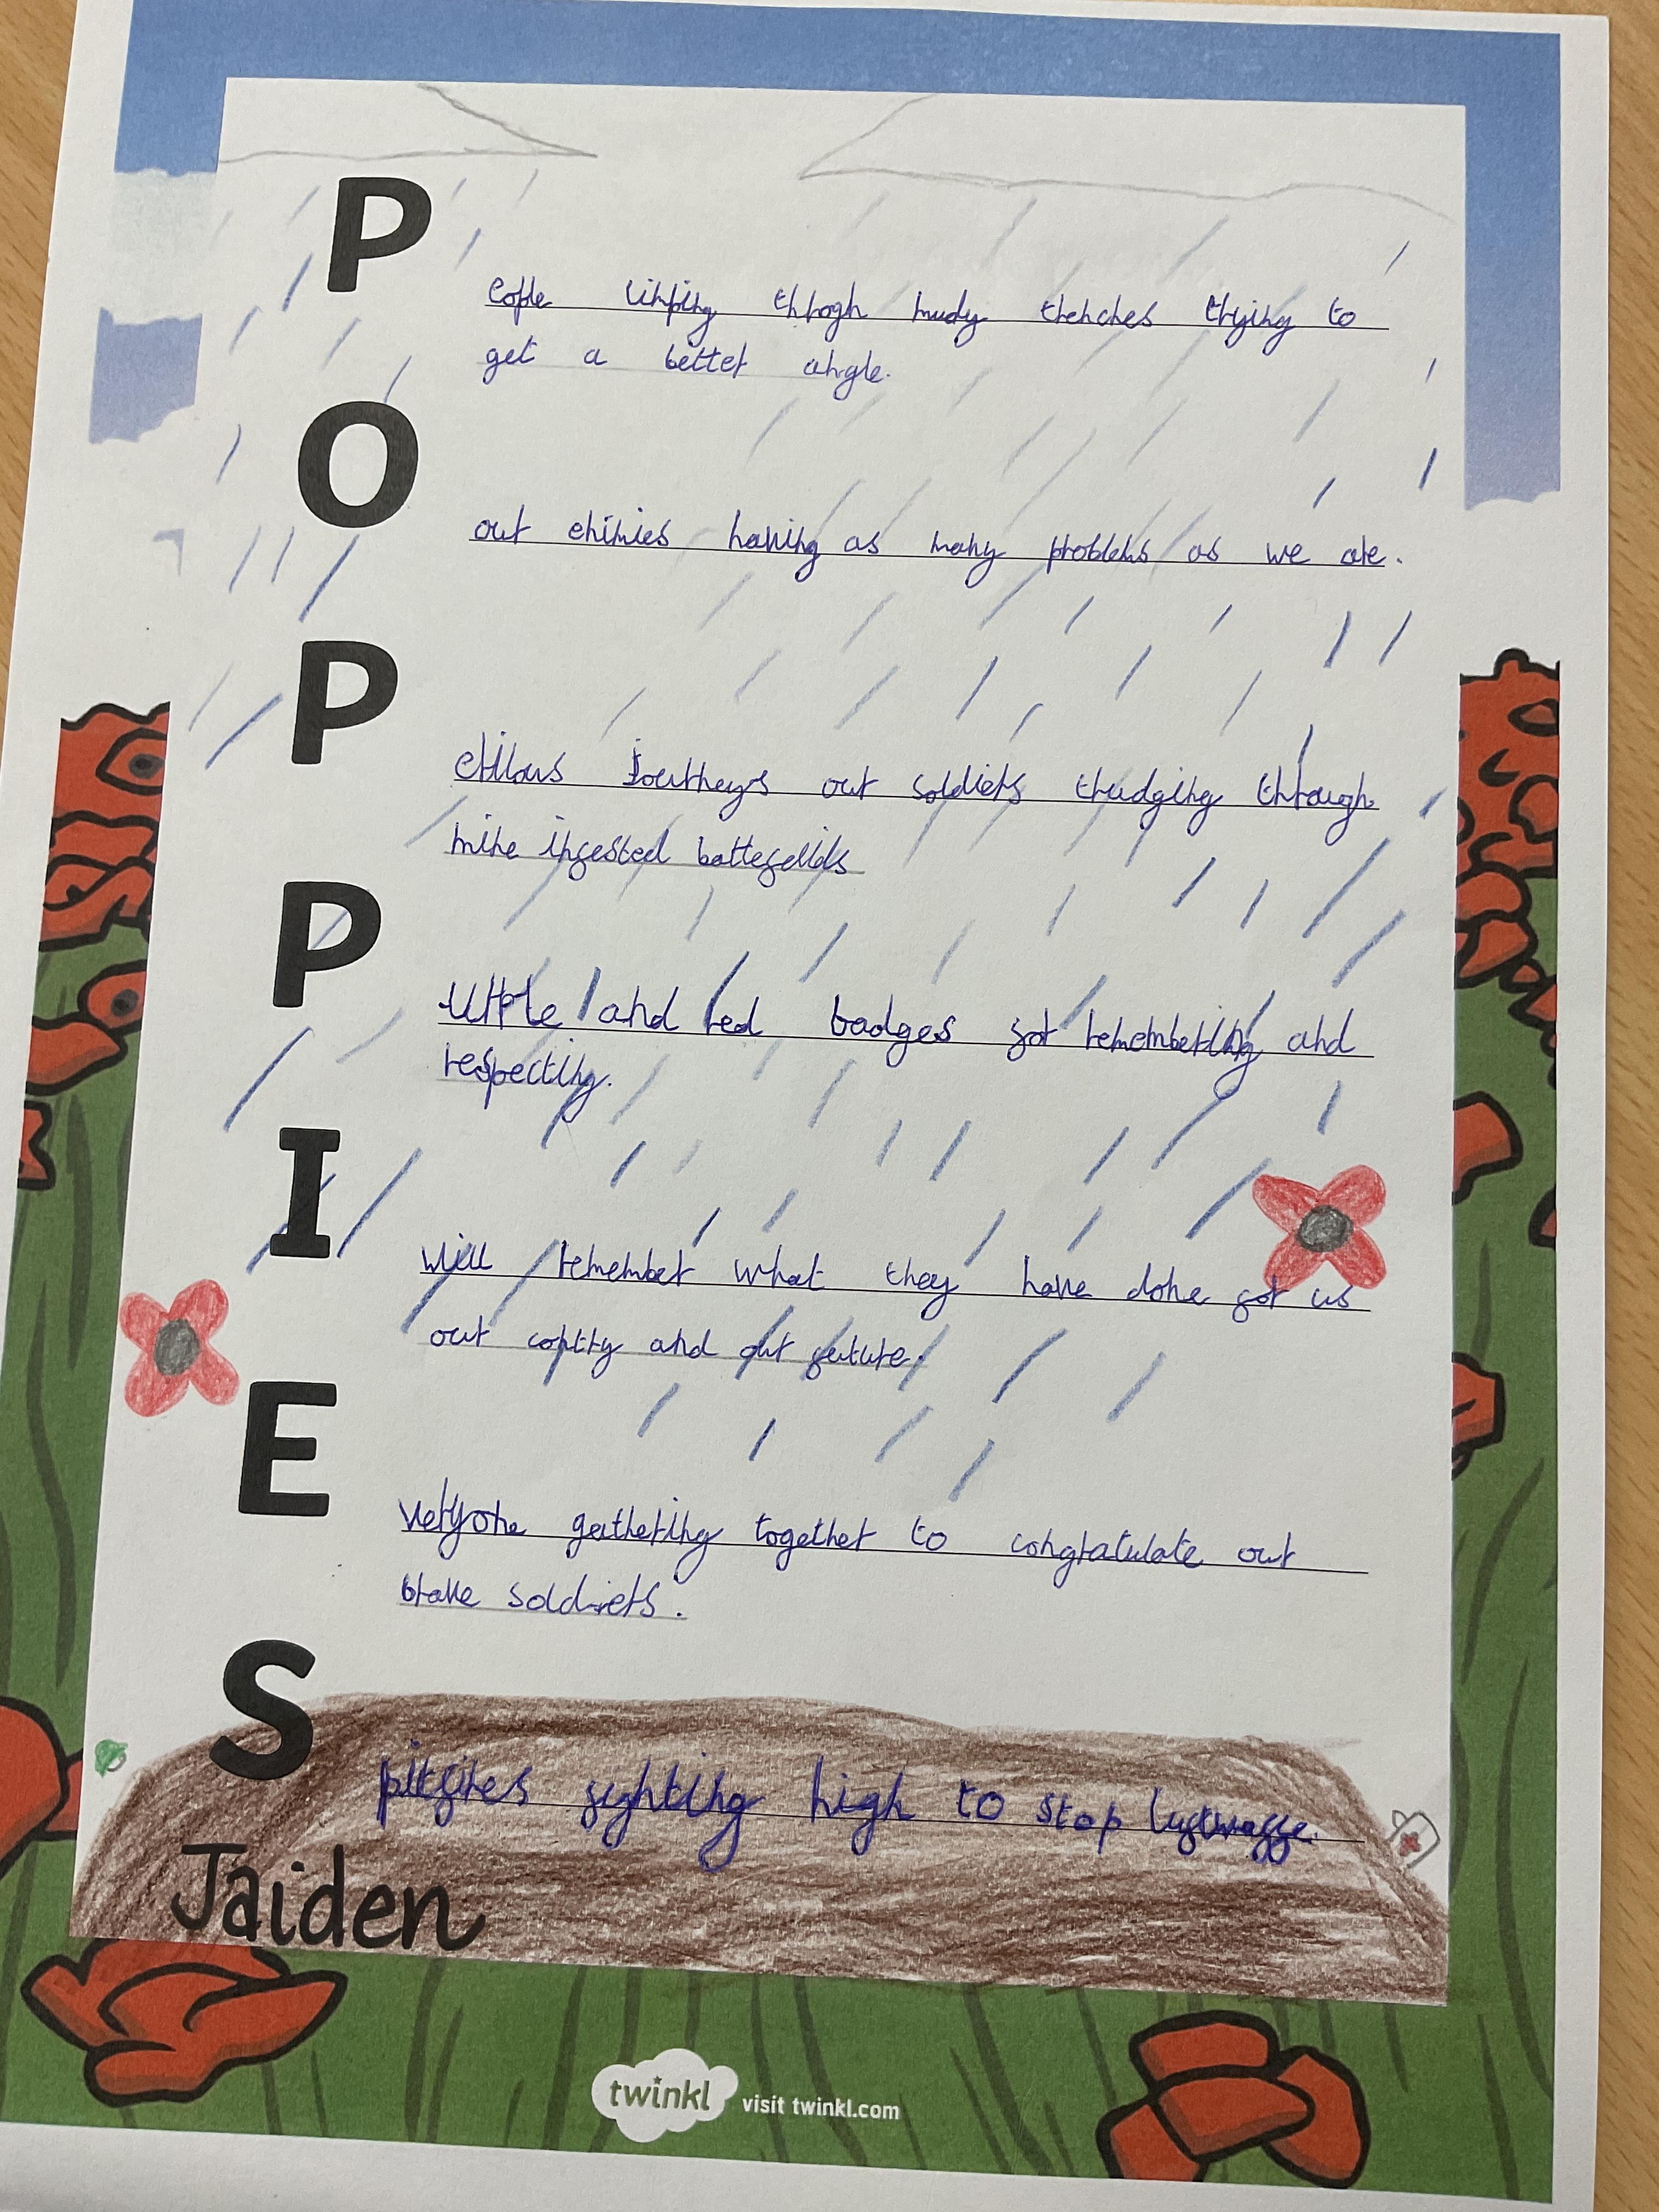 P
eople limping throgh mudy trenches trying to
get a better angle.
O
our enimies having as many problems as we are.
P
erilous journeys our soldiers trudging through
mine infested battefeilds
P
urple and red badges for remembering and
respecting.
I
will remember what they have done for us
our contry and our future.
E
veryone gathering together to congratulate our
brave soldiers.
S
pitfires fighting high to stop luftwaffe.
Jaiden
twinkl visit twinkl.com